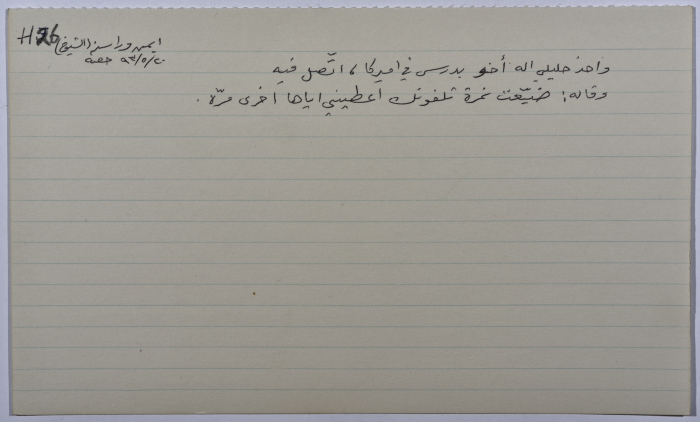 H26
ايمن وراسنه (الشيخ)
٩٣/٥/٢٠ حصه
واحد خليلي اله أخو بدرس في اميركا، اتّصل فيه
وقاله: ضيّعت نمرة تلفونك اعطيني اياها اخرى مرّة.